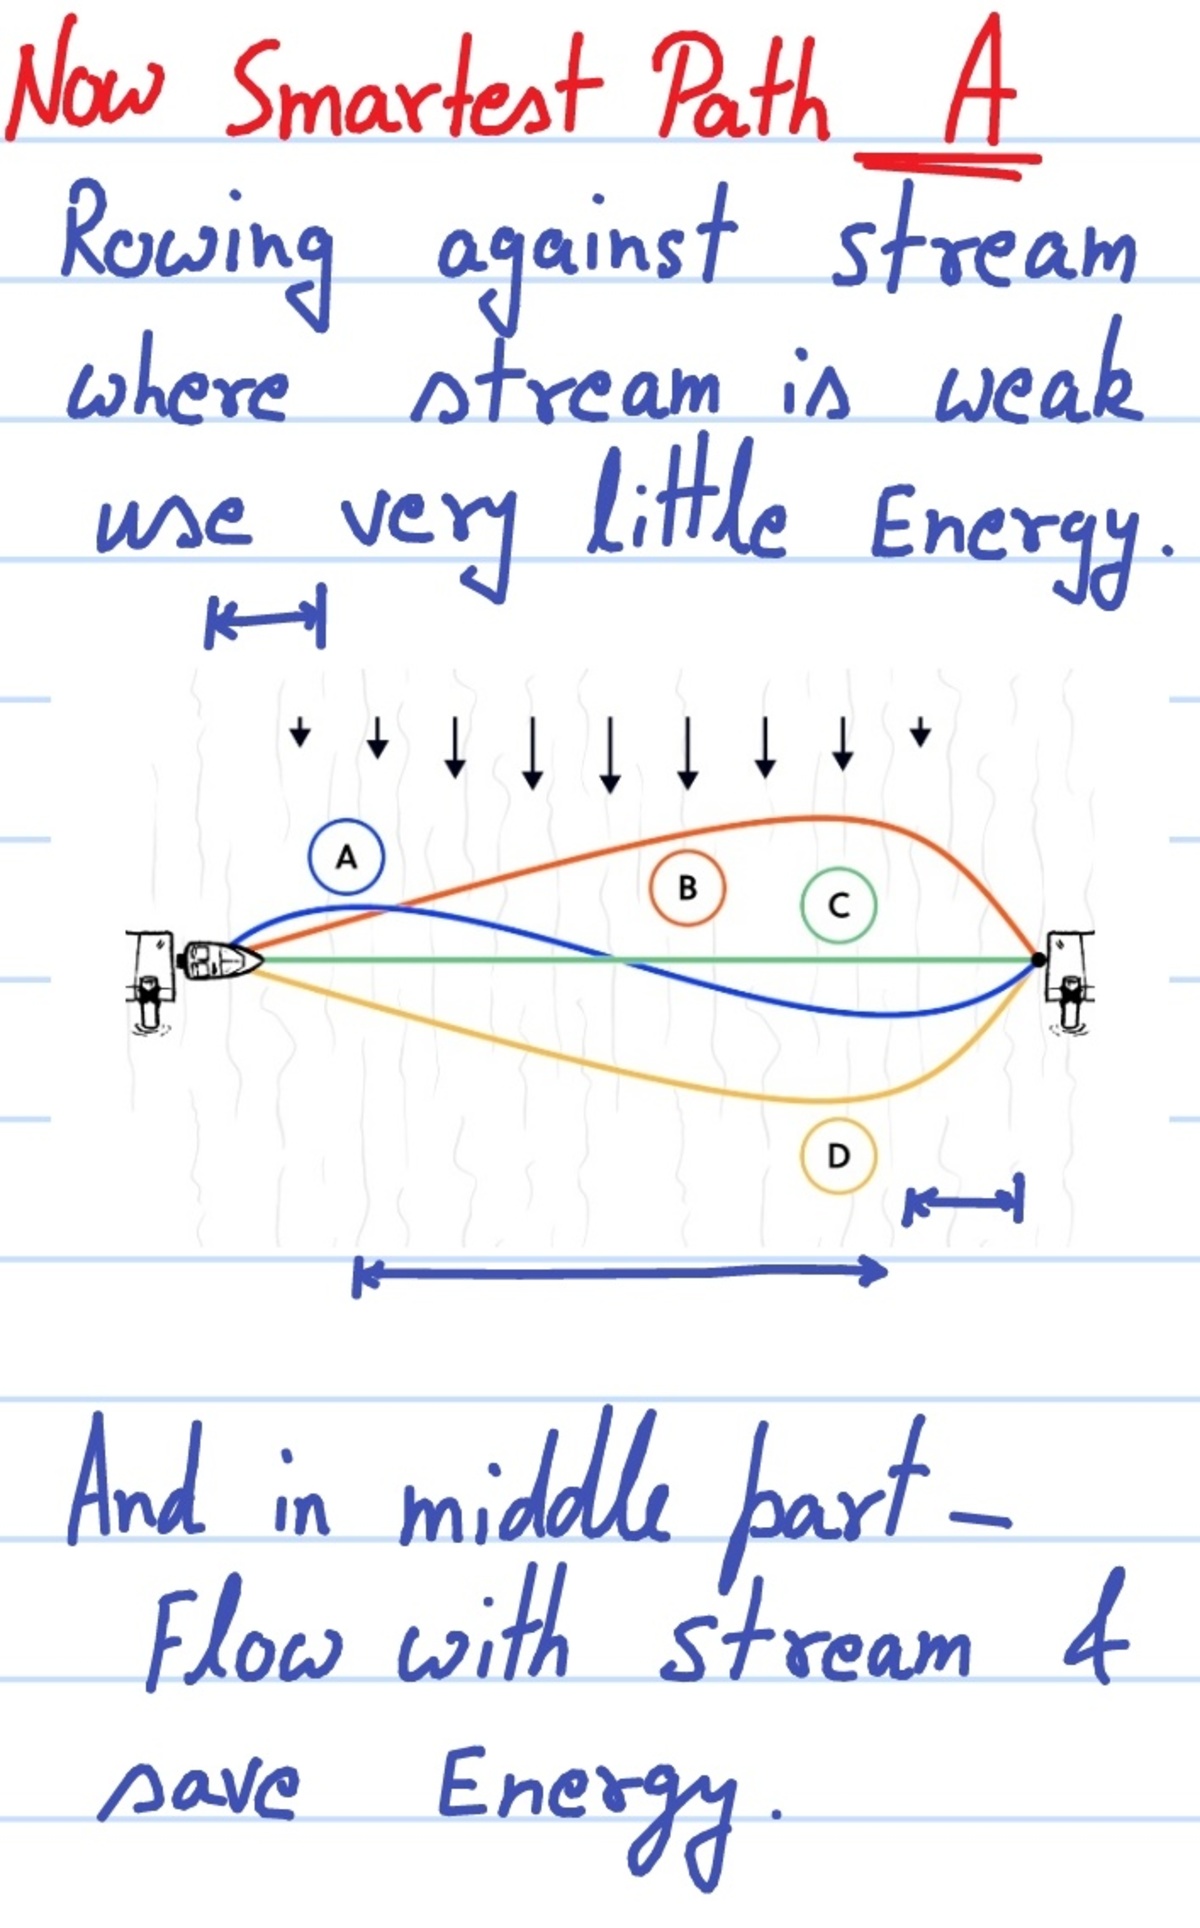 Now Smartest Path A
Rowing against stream
where stream is weak
use very little Energy.
A
B
C
D
And in middle part –
Flow with stream &
save Energy.